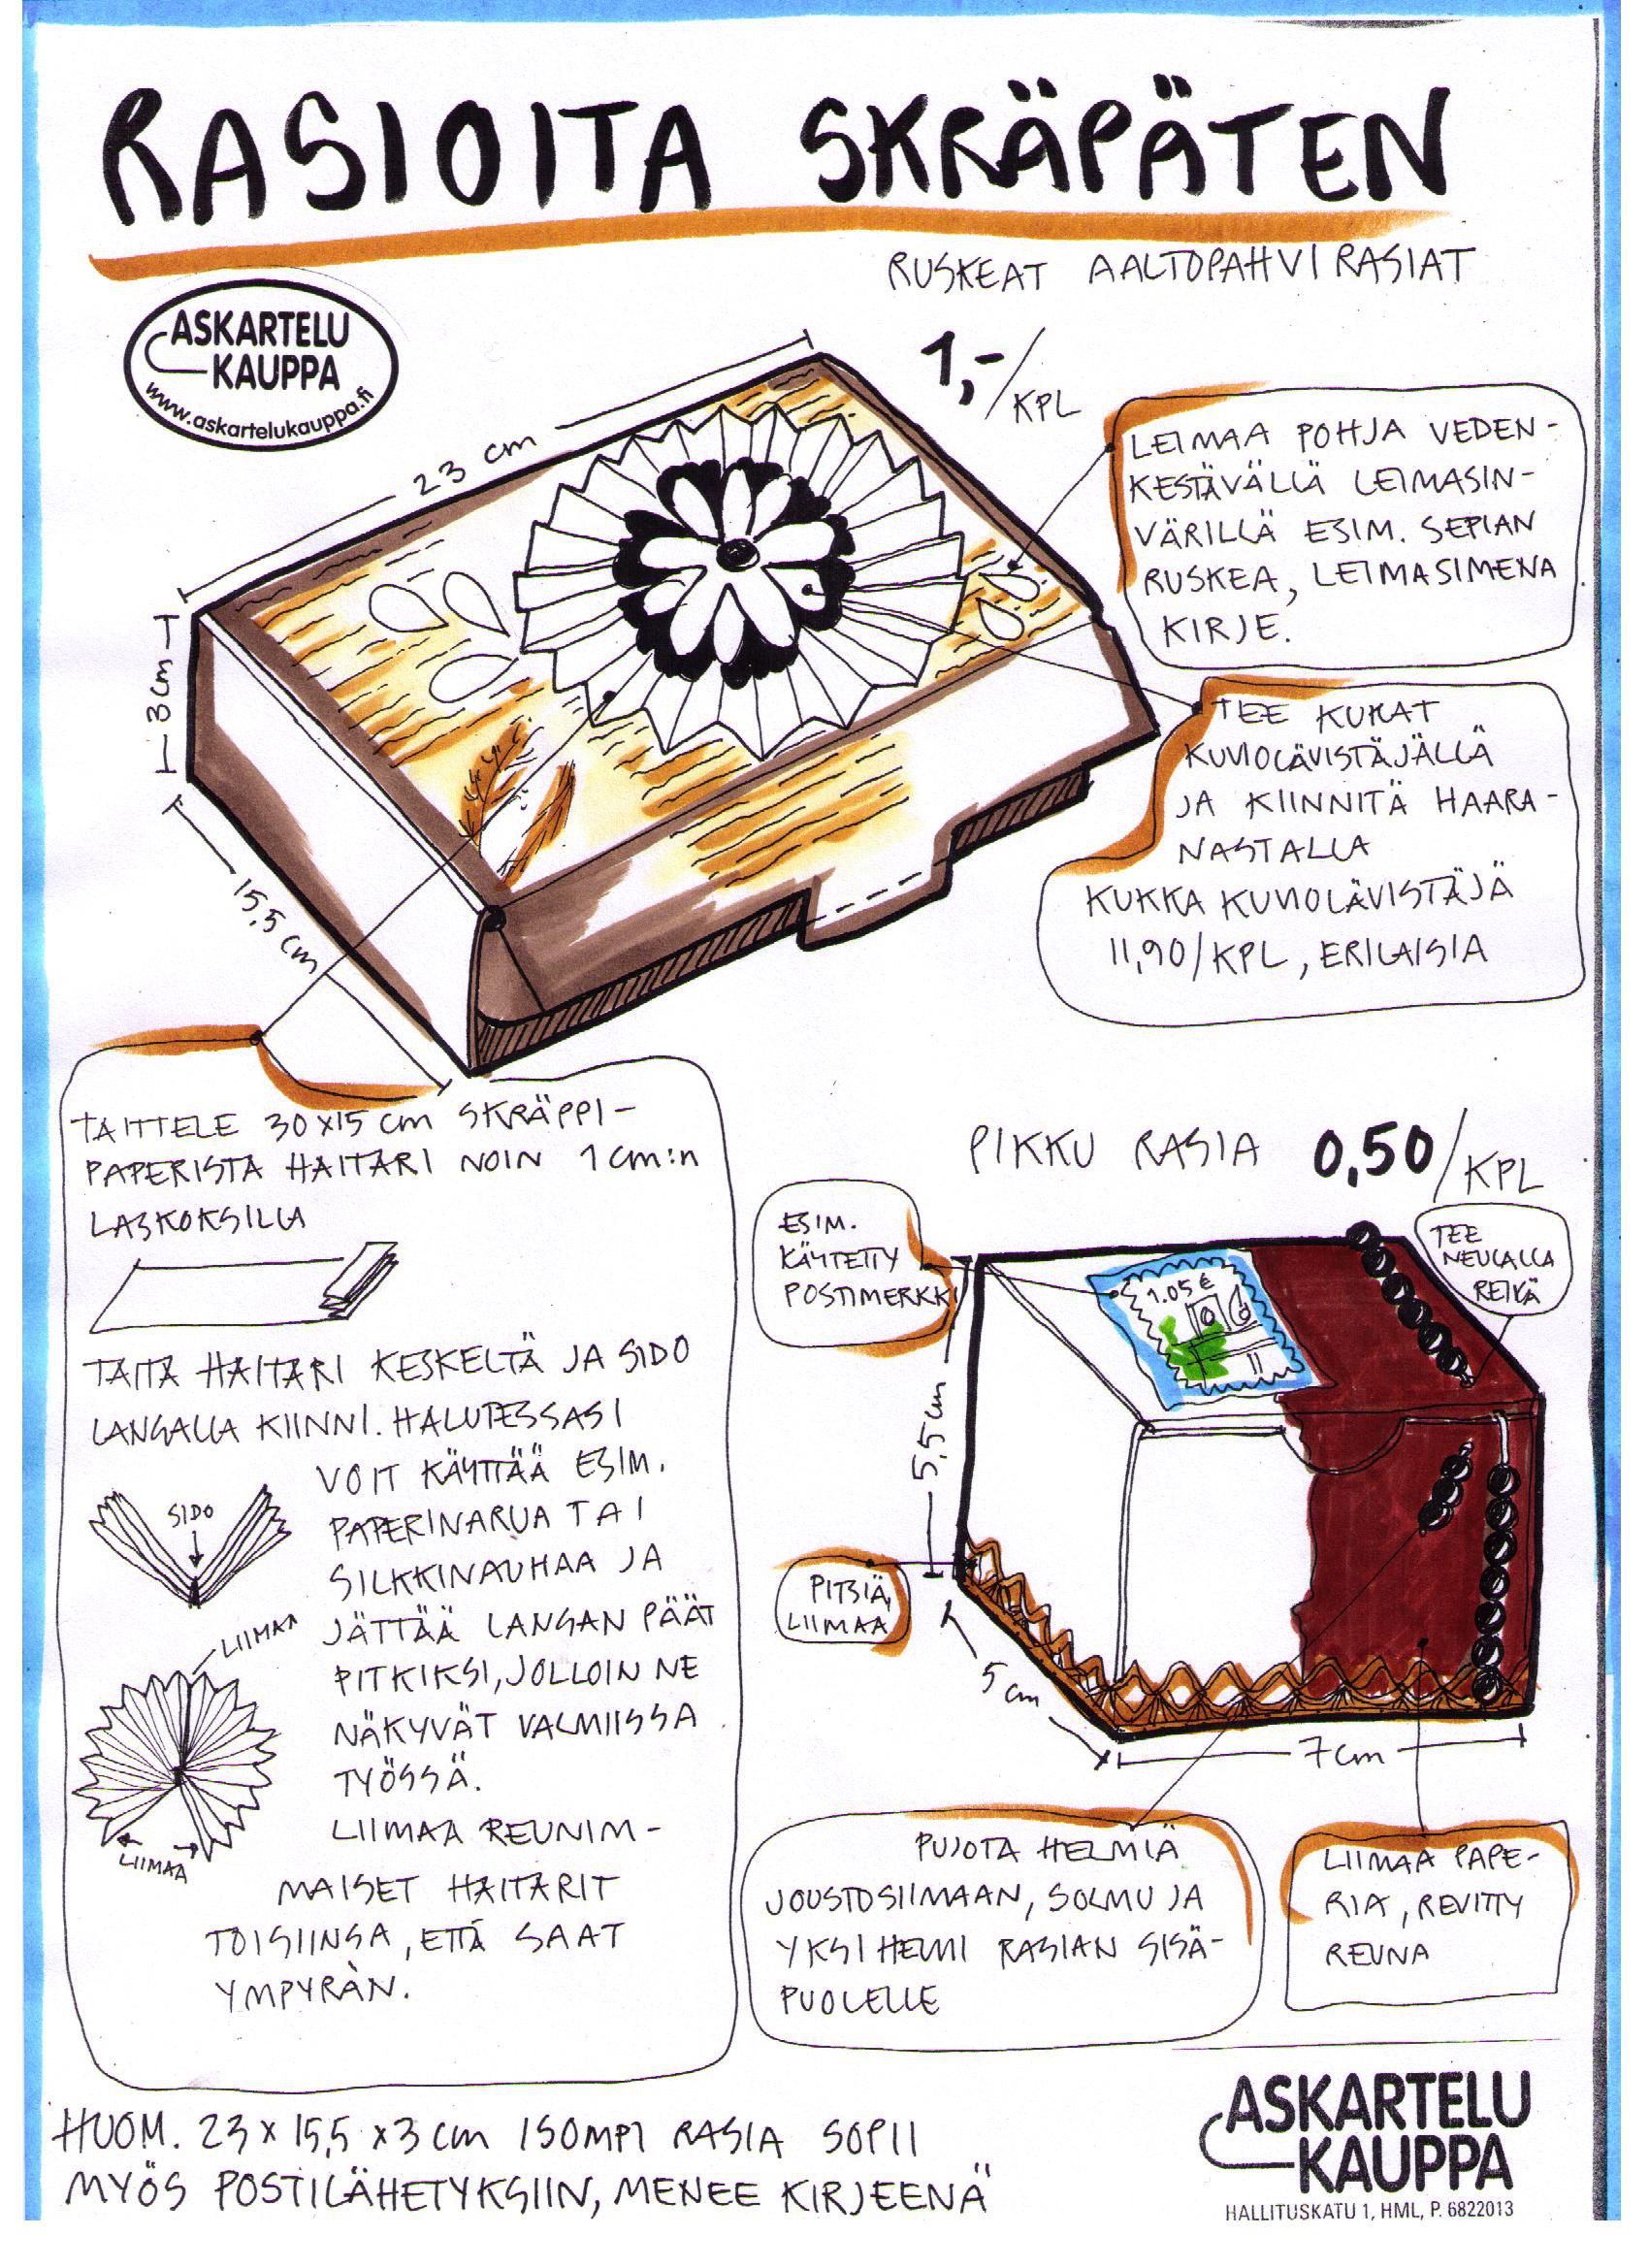 RASIOITA SKRÄPÄTEN
RUSKEAT AALTOPAHVIRASIAT
ASKARTELU
KAUPPA
www.askartelukauppa.fi
1,-/KPL
23 cm
3 cm
15,5 cm
LEIMAA POHJA VEDEN-
KESTÄVÄLLÄ LEIMASIN-
VÄRILLÄ ESIM. SEPIAN
RUSKEA, LEIMASIMENA
KIRJE.
TEE KUKAT
KUVIOLÄVISTÄJÄLLÄ
JA KIINNITÄ HAARA-
NASTALLA
KUKKA KUVIOLÄVISTÄJÄ
11,90/KPL, ERILAISIA
TAITTELE 30x15 cm SKRÄPPI-
PAPERISTA HAITARI NOIN 1 cm:n
LASKOKSILLA
TAITA HAITARI KESKELTÄ JA SIDO
LANGALLA KIINNI. HALUTESSASI
VOIT KÄYTTÄÄ ESIM.
PAPERINARUA TAI
SILKKINAUHAA JA
JÄTTÄÄ LANGAN PÄÄT
PITKIKSI, JOLLOIN NE
NÄKYVÄT VALMIISSA
TYÖSSÄ.
LIIMAA REUNIM-
MAISET HAITARIT
TOISIINSA, ETTÄ SAAT
YMPYRÄN.
SIDO
LIIMAA
LIIMAA
PIKKU RASIA 0,50/KPL
ESIM.
KÄYTETTY
POSTIMERKKI
1.05 €
TEE
NEULALLA
REIKÄ
5,5 cm
PITSIÄ,
LIIMAA
5 cm
7 cm
PUJOTA HELMIÄ
JOUSTOSIIMAAN, SOLMU JA
YKSI HELMI RASIAN SISÄ-
PUOLELLE
LIIMAA PAPE-
RIA, REVITTY
REUNA
HUOM. 23 x 15,5 x 3 cm ISOMPI RASIA SOPII
MYÖS POSTILÄHETYKSIIN, MENEE KIRJEENÄ
ASKARTELU
KAUPPA
HALLITUSKATU 1, HML, P. 6822013